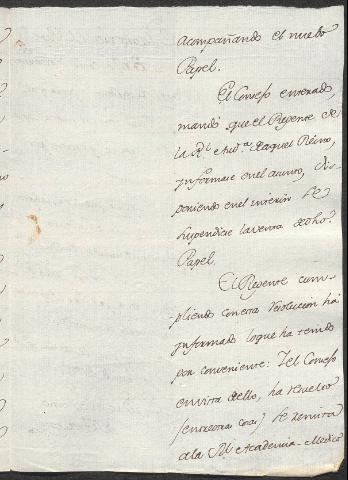 acompañando el nuebo
Papel.
El Consejo enterado,
mandó que el Regente de
la Rl. Auda. de aquel Reino,
ynformase en el asunto, dis-
poniendo en el interin se
suspendiese la venta de dho.
Papel.
El Regente cum-
pliendo con esta resolucion ha
ynformado lo que ha tenido
por conveniente: Y el Consejo
en vista de ello, ha resuelto
(entre otras cosas) se remita
a la Rl. Academia-Medico